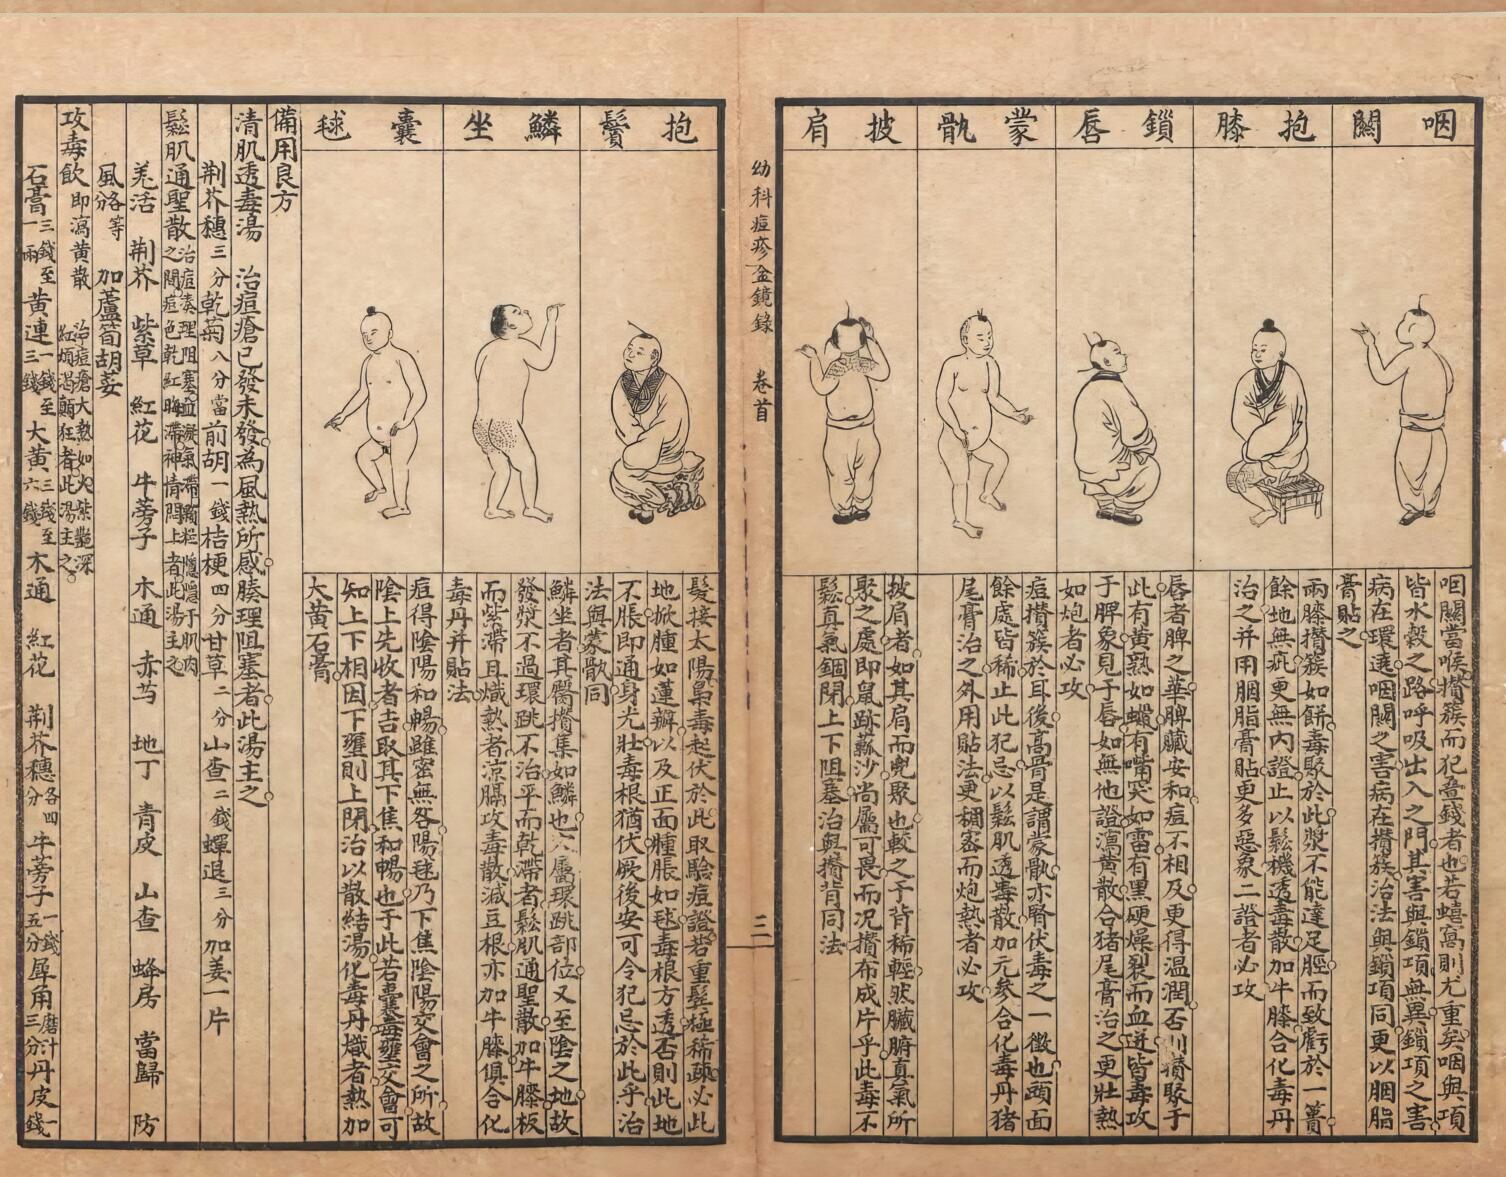 咽關
咽關當喉攢簇而犯疊錢者也若蟢窩則尤重矣咽與項
皆水穀之路呼吸出入之門其害與鎖項無異鎖項之害
病在環遶咽關之害病在攢簇治法與鎖項同更以胭脂
膏貼之
抱膝
兩膝攢簇如餅毒聚於此漿不能達足脛而致虧於一簣
餘地無疵更無內證止以鬆機透毒散加牛膝合化毒丹
治之并用胭脂膏貼更多惡象二證者必攻
鎖唇
唇者脾之華脾臟安和痘不相及更得温潤否則攢聚于
此有黄熟如蠟有嘴突如雷有黑硬燥裂而血迸皆毒攻
于脾象見于唇如無他證瀉黄散合猪尾膏治之更壯熱
如炮者必攻
蒙骩
痘攢簇於耳後高骨是謂蒙骩亦腎伏毒之一徵也頭面
餘處皆稀止此犯忌以鬆肌透毒散加元參合化毒丹猪
尾膏治之外用貼法更稠密而炮熱者必攻
披肩
披肩者如其肩而兜聚也較之于背稀輕然臟腑真氣所
聚之處即鼠跡蘇沙尚屬可畏而况攢布成片乎此毒不
鬆真氣錮閉上下阻塞治與攢背同法
幼科痘疹金鏡錄 卷首 三
抱鬢
髮接太陽梟毒起伏於此取驗痘證若重髮極稀疎必此
地掀腫如蓮瓣以及正面腫脹如毬毒根方透否則此地
不脹即通身光壯毒根猶伏厥後安可令犯忌於此乎治
法與蒙骩同
鱗坐
鱗坐者其臀攢集如鱗也穴屬環跳部位又至陰之地故
發漿不過環跳不治平而乾滯者鬆肌通聖散加牛膝板
而紫滯且熾熱者凉膈攻毒散減豆根亦加牛膝俱合化
毒丹并貼法
囊毬
痘得陰陽和暢雖密無咎陽毬乃下焦陰陽交會之所故
陰上先收者吉取其下焦和暢也于此若囊毒壅交會可
知上下相因下壅則上閉治以散結湯化毒丹熾者熱加
大黄石膏
備用良方
清肌透毒湯 治痘瘡已發未發為風熱所感腠理阻塞者此湯主之
荆芥穗三分 乾菊八分 當 前胡一錢 桔梗四分 甘草二分 山查二錢 蟬退三分 加姜一片
鬆肌通聖散 治痘湊理阻塞血凝氣滯觸粒隱隱于肌肉
之間痘色乾紅晦滯神情悶上者此湯主之
羌活 荆芥 紫草 紅花 牛蒡子 木通 赤芍 地丁 青皮 山查 蜂房 當歸 防
風各等分 加蘆筍胡荽
攻毒飲 即瀉黄散 治痘瘡大熱如火紫艷深
紅煩渴顛狂者此湯主之
石膏三錢至一兩 黄連一錢至三錢 大黄三錢至六錢 木通 紅花 荆芥穗各四分 牛蒡子一錢五分 犀角磨汁三分 丹皮一錢